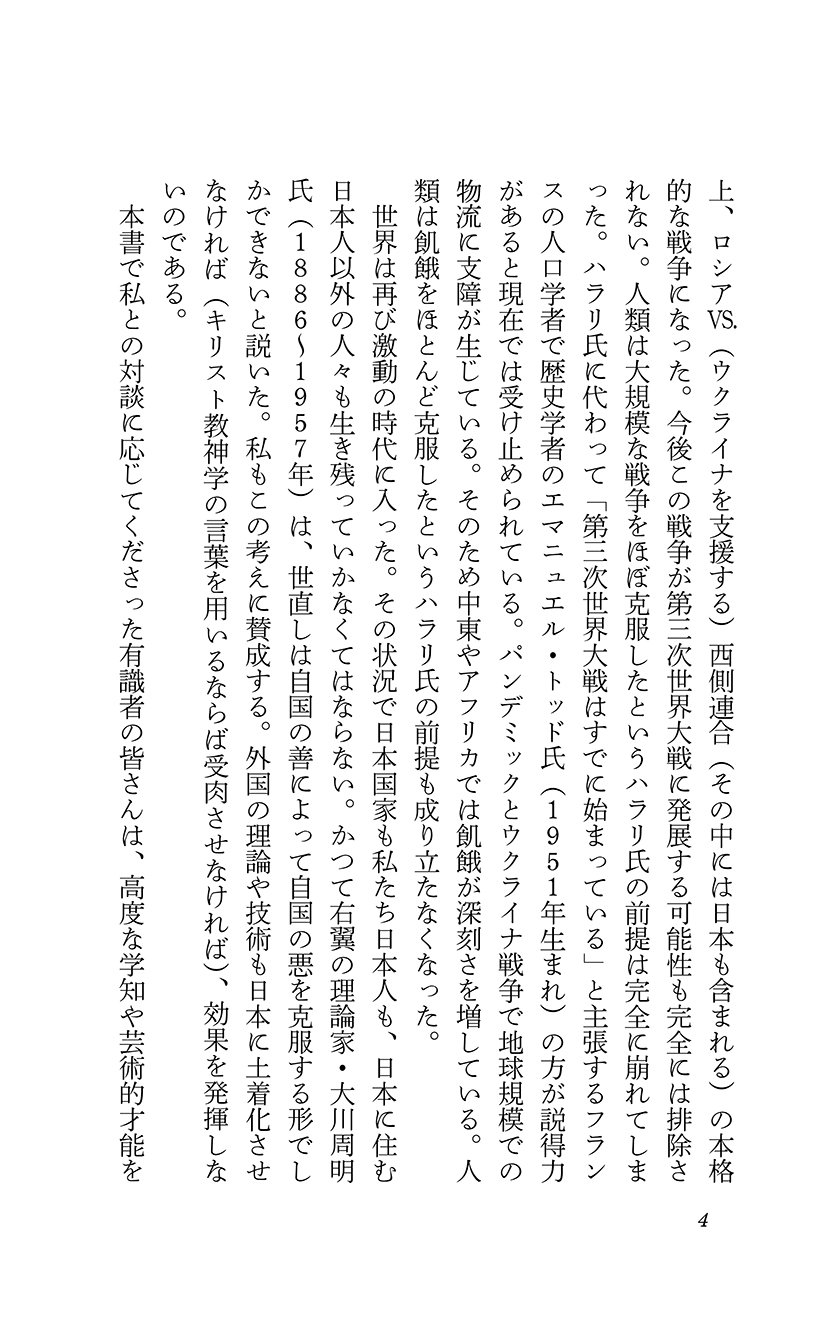 上、ロシアVS.（ウクライナを支援する）西側連合（その中には日本も含まれる）の本格
的な戦争になった。今後この戦争が第三次世界大戦に発展する可能性も完全には排除さ
れない。人類は大規模な戦争をほぼ克服したというハラリ氏の前提は完全に崩れてしま
った。ハラリ氏に代わって「第三次世界大戦はすでに始まっている」と主張するフラン
スの人口学者で歴史学者のエマニュエル・トッド氏（1951年生まれ）の方が説得力
があると現在では受け止められている。パンデミックとウクライナ戦争で地球規模での
物流に支障が生じている。そのため中東やアフリカでは飢餓が深刻さを増している。人
類は飢餓をほとんど克服したというハラリ氏の前提も成り立たなくなった。
　世界は再び激動の時代に入った。その状況で日本国家も私たち日本人も、日本に住む
日本人以外の人々も生き残っていかなくてはならない。かつて右翼の理論家・大川周明
氏（1886〜1957年）は、世直しは自国の善によって自国の悪を克服する形でし
かできないと説いた。私もこの考えに賛成する。外国の理論や技術も日本に土着化させ
なければ（キリスト教神学の言葉を用いるならば受肉させなければ）、効果を発揮しな
いのである。
　本書で私との対談に応じてくださった有識者の皆さんは、高度な学知や芸術的才能を
4